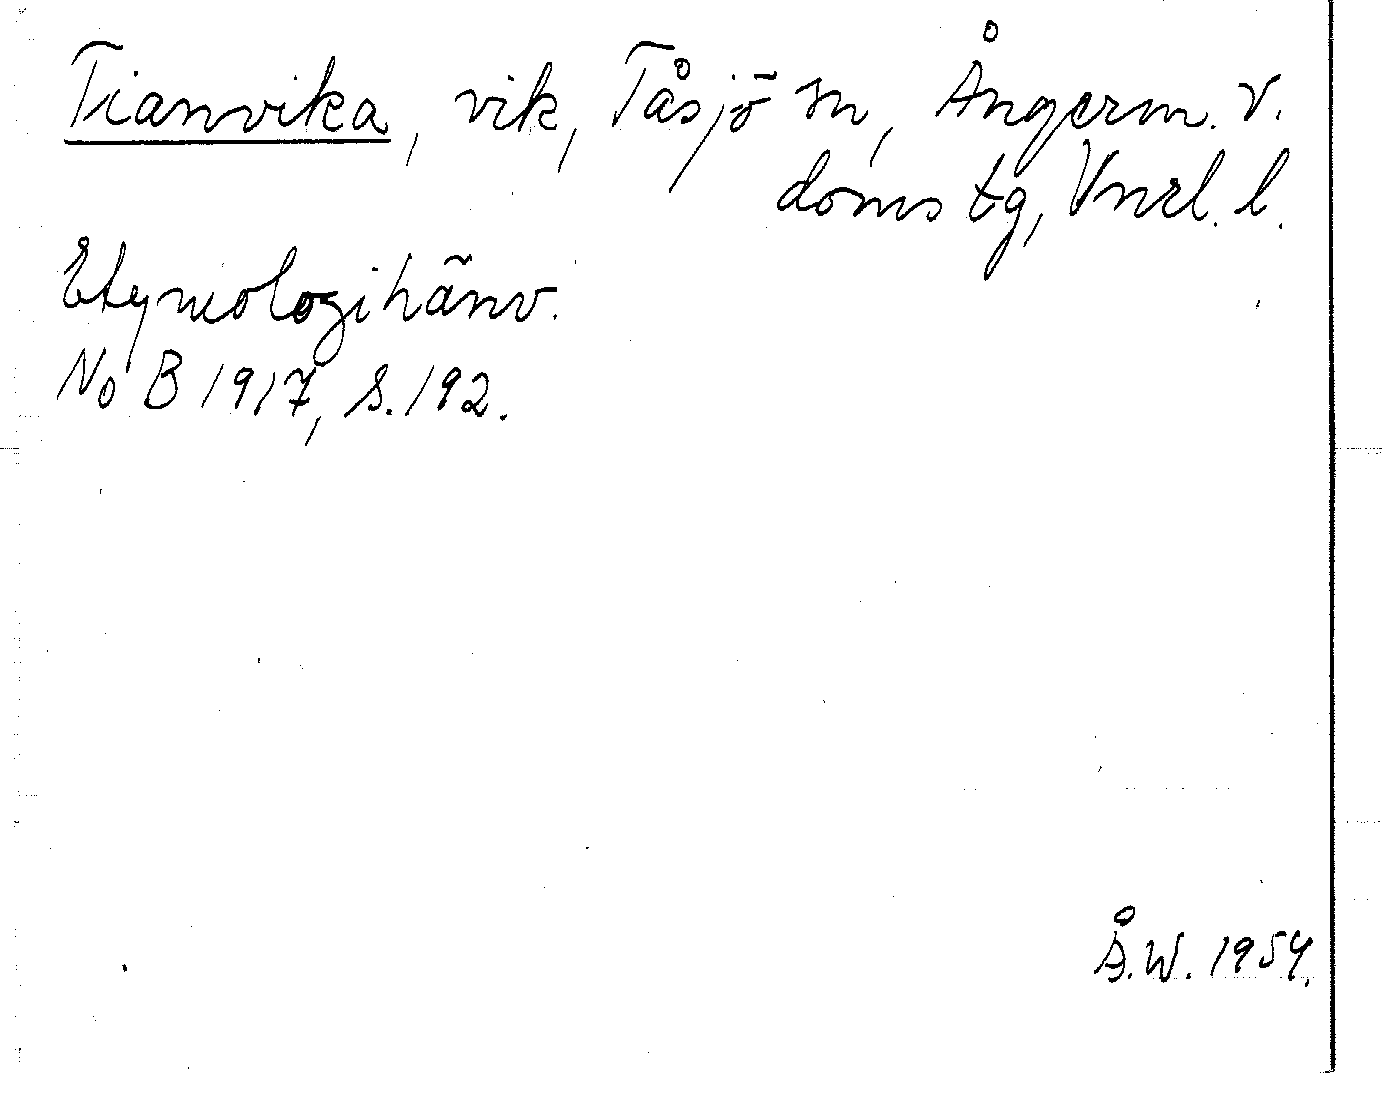 Tianvika, vik, Tåsjö sn, Ångerm. v.
doms tg, Vnrl. l.
Etymologihänv.
NoB 1917, s. 192.
Å.W. 1954.